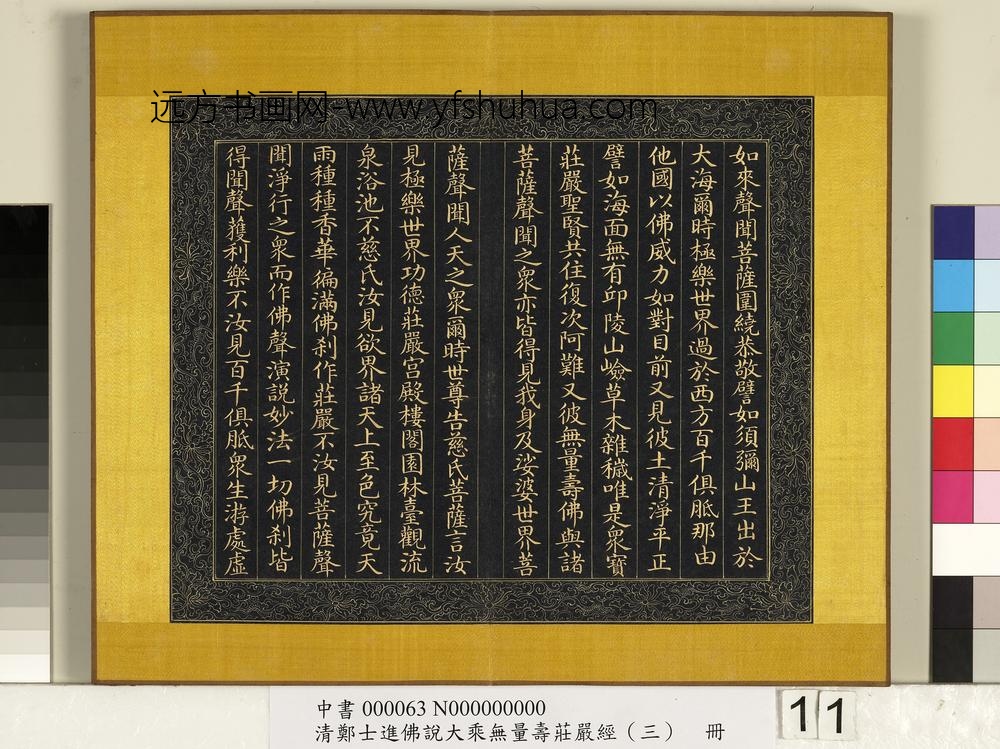 远方书画网-www.yfshuhua.com
如來聲聞菩薩圍繞恭敬譬如須彌山王出於
大海爾時極樂世界過於西方百千俱胝那由
他國以佛威力如對目前又見彼土清淨平正
譬如海面無有邱陵山嶮草木雜穢唯是眾寶
莊嚴聖賢共住復次阿難又彼無量壽佛與諸
菩薩聲聞之眾亦皆得見我身及娑婆世界菩
薩聲聞人天之眾爾時世尊告慈氏菩薩言汝
見極樂世界功德莊嚴宮殿樓閣園林臺觀流
泉浴池不慈氏汝見欲界諸天上至色究竟天
雨種種香華徧滿佛剎作莊嚴不汝見菩薩聲
聞淨行之眾而作佛聲演說妙法一切佛剎皆
得聞聲獲利樂不汝見百千俱胝眾生游處虛
中書 000063 N000000000
清鄭士進佛說大乘無量壽莊嚴經（三） 冊
11